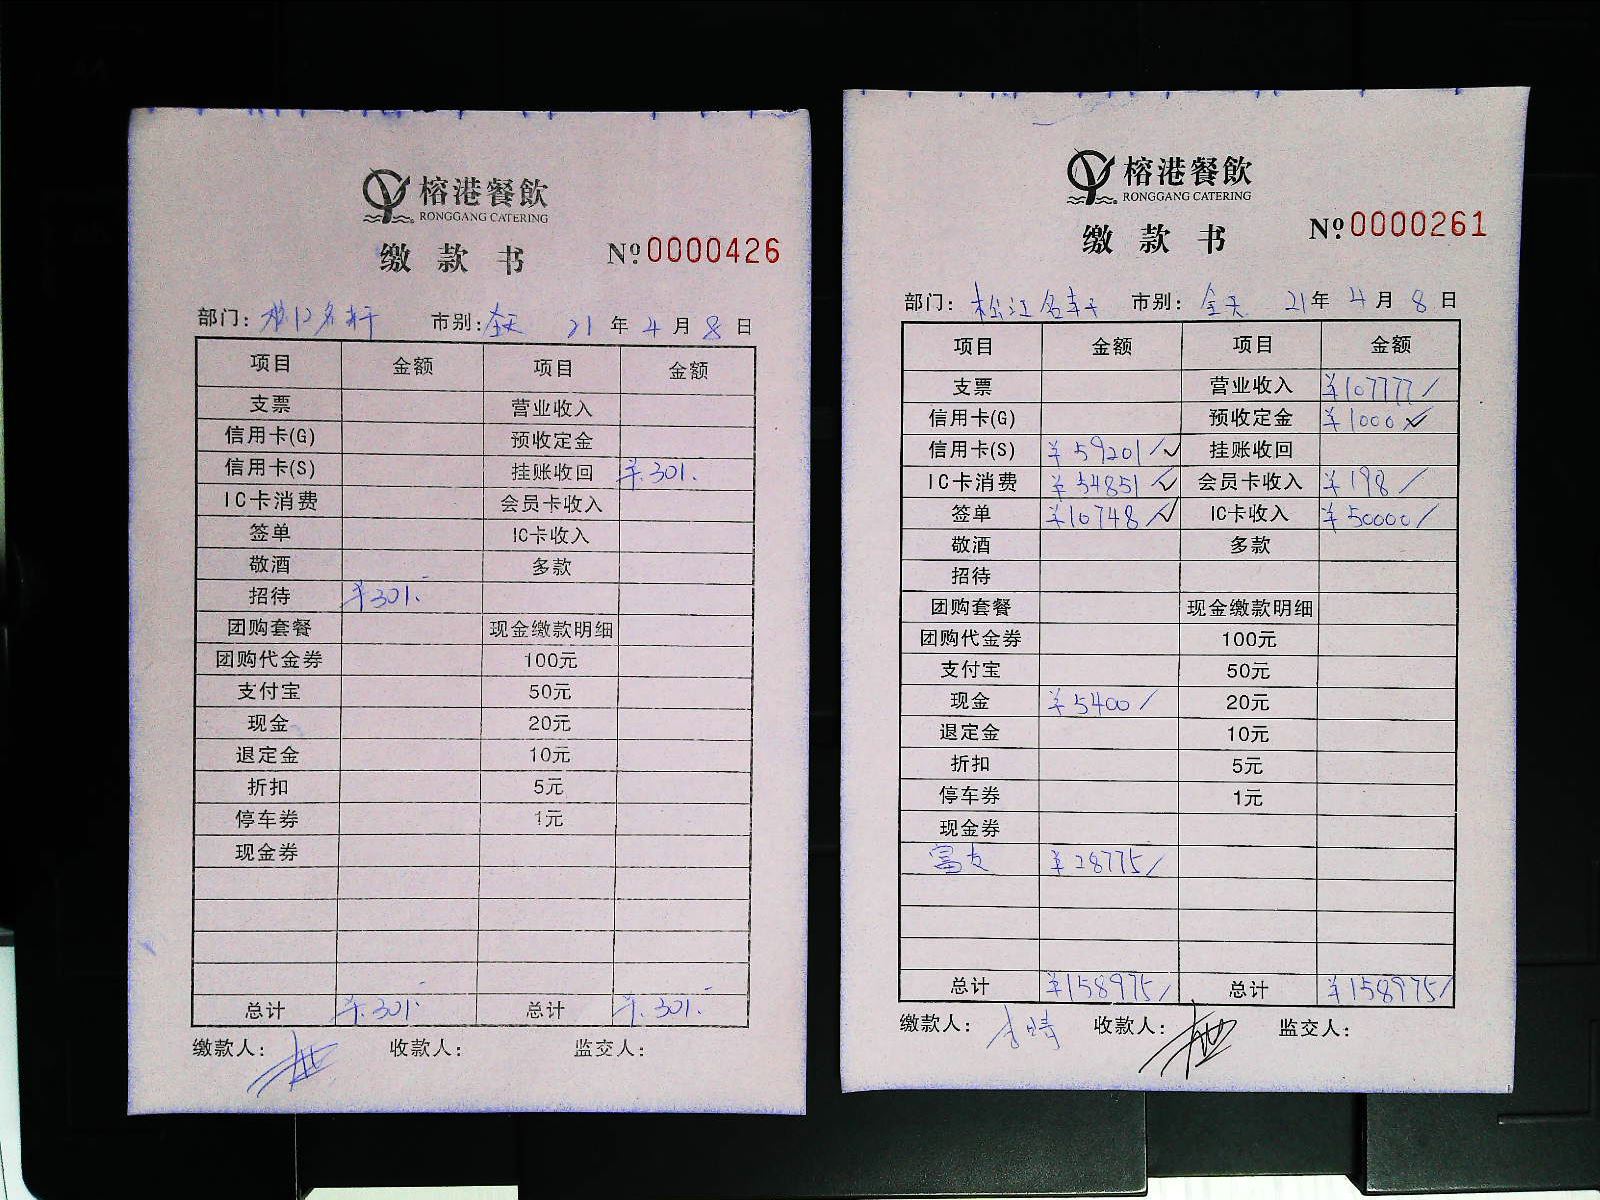 榕港餐飲
RONGGANG CATERING
缴款书 № 0000426
部门: 松江名轩 市别: 全天 21年 4月 8日
项目 金额 项目 金额
支票 营业收入
信用卡(G) 预收定金
信用卡(S) 挂账收回 ¥301.-
IC卡消费 会员卡收入
签单 IC卡收入
敬酒 多款
招待 ¥301.-
团购套餐 现金缴款明细
团购代金券 100元
支付宝 50元
现金 20元
退定金 10元
折扣 5元
停车券 1元
现金券
总计 ¥.301.- 总计 ¥.301.-
缴款人: 收款人: 监交人:
榕港餐飲
RONGGANG CATERING
缴款书 № 0000261
部门: 松江名轩 市别: 全天 21年 4月 8日
项目 金额 项目 金额
支票 营业收入 ¥107777/
信用卡(G) 预收定金 ¥1000✓
信用卡(S) ¥59201/✓ 挂账收回
IC卡消费 ¥54851/✓ 会员卡收入 ¥198/
签单 ¥10748/✓ IC卡收入 ¥50000/
敬酒 多款
招待
团购套餐 现金缴款明细
团购代金券 100元
支付宝 50元
现金 ¥5400/ 20元
退定金 10元
折扣 5元
停车券 1元
现金券
富友 ¥28775/
总计 ¥158975/ 总计 ¥158975/
缴款人: 收款人: 监交人: